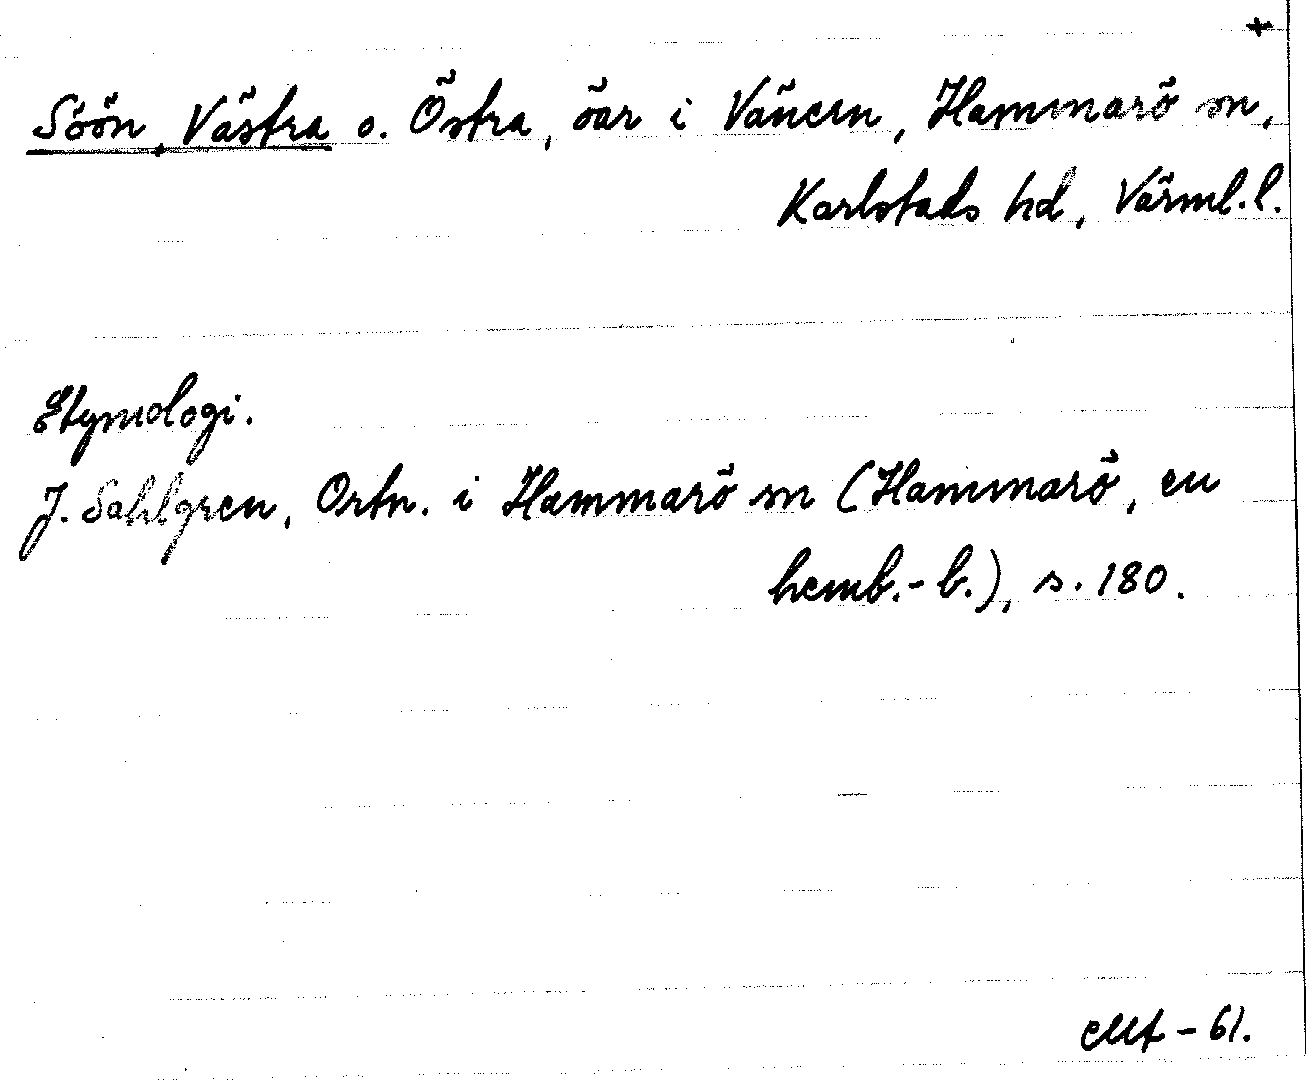 +
Söön, Västra o. Östra, öar i Vänern, Hammarö sn,
Karlstads hd, Värml. l.
Etymologi.
J. Sahlgren, Ortn. i Hammarö sn (Hammarö, en
hemb.-b.), s. 180.
- 61.